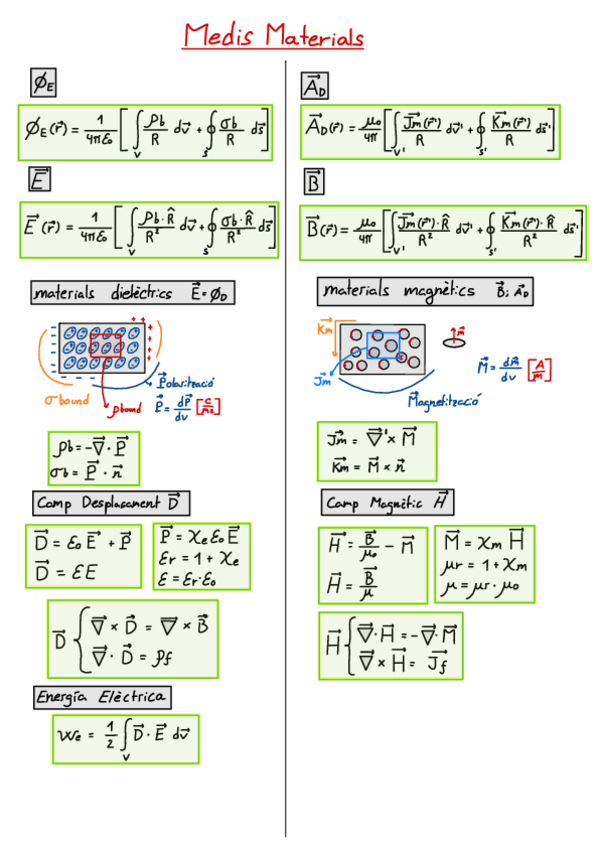 Medis Materials
ϕE
ϕE(r⃗) = 1/4πε₀ [ ∫V ρb/R dv⃗ + ∮S σb/R ds⃗ ]
E⃗
E⃗(r⃗) = 1/4πε₀ [ ∫V ρb·R̂/R² dv⃗ + ∮S σb·R̂/R² ds⃗ ]
materials dielèctrics E⃗=ϕD
σ bound
ρbound
P⃗olarització
P⃗ = dP⃗/dv
ρb = -∇⃗·P⃗
σb = P⃗·n⃗
Camp Desplaçament D⃗
D⃗ = ε₀E⃗ + P⃗
D⃗ = εE
P⃗ = χe ε₀ E⃗
εr = 1 + χe
ε = εr·ε₀
D⃗ { ∇⃗ × D⃗ = ∇⃗ × B⃗
∇⃗ · D⃗ = ρf
Energía Elèctrica
We = 1/2 ∫V D⃗ · E⃗ dv⃗
A⃗D
A⃗D(r⃗) = μ₀/4π [ ∫V' J⃗m(r⃗')/R dv⃗' + ∮S' K⃗m(r⃗')/R ds⃗' ]
B⃗
B⃗(r⃗) = μ₀/4π [ ∫V' J⃗m(r⃗')·R̂/R² dv⃗' + ∮S' K⃗m(r⃗')·R̂/R² ds⃗' ]
materials magnètics B⃗; A⃗D
K⃗m
J⃗m
m⃗
M⃗ = dm⃗/dv [A/m]
M⃗agnetització
J⃗m = ∇⃗' × M⃗
K⃗m = M⃗ × n⃗
Camp Magnètic H⃗
H⃗ = B⃗/μ₀ - M⃗
H⃗ = B⃗/μ
M⃗ = χm H⃗
μr = 1 + χm
μ = μr · μ₀
H⃗ { ∇⃗·H⃗ = -∇⃗·M⃗
∇⃗ × H⃗ = J⃗f